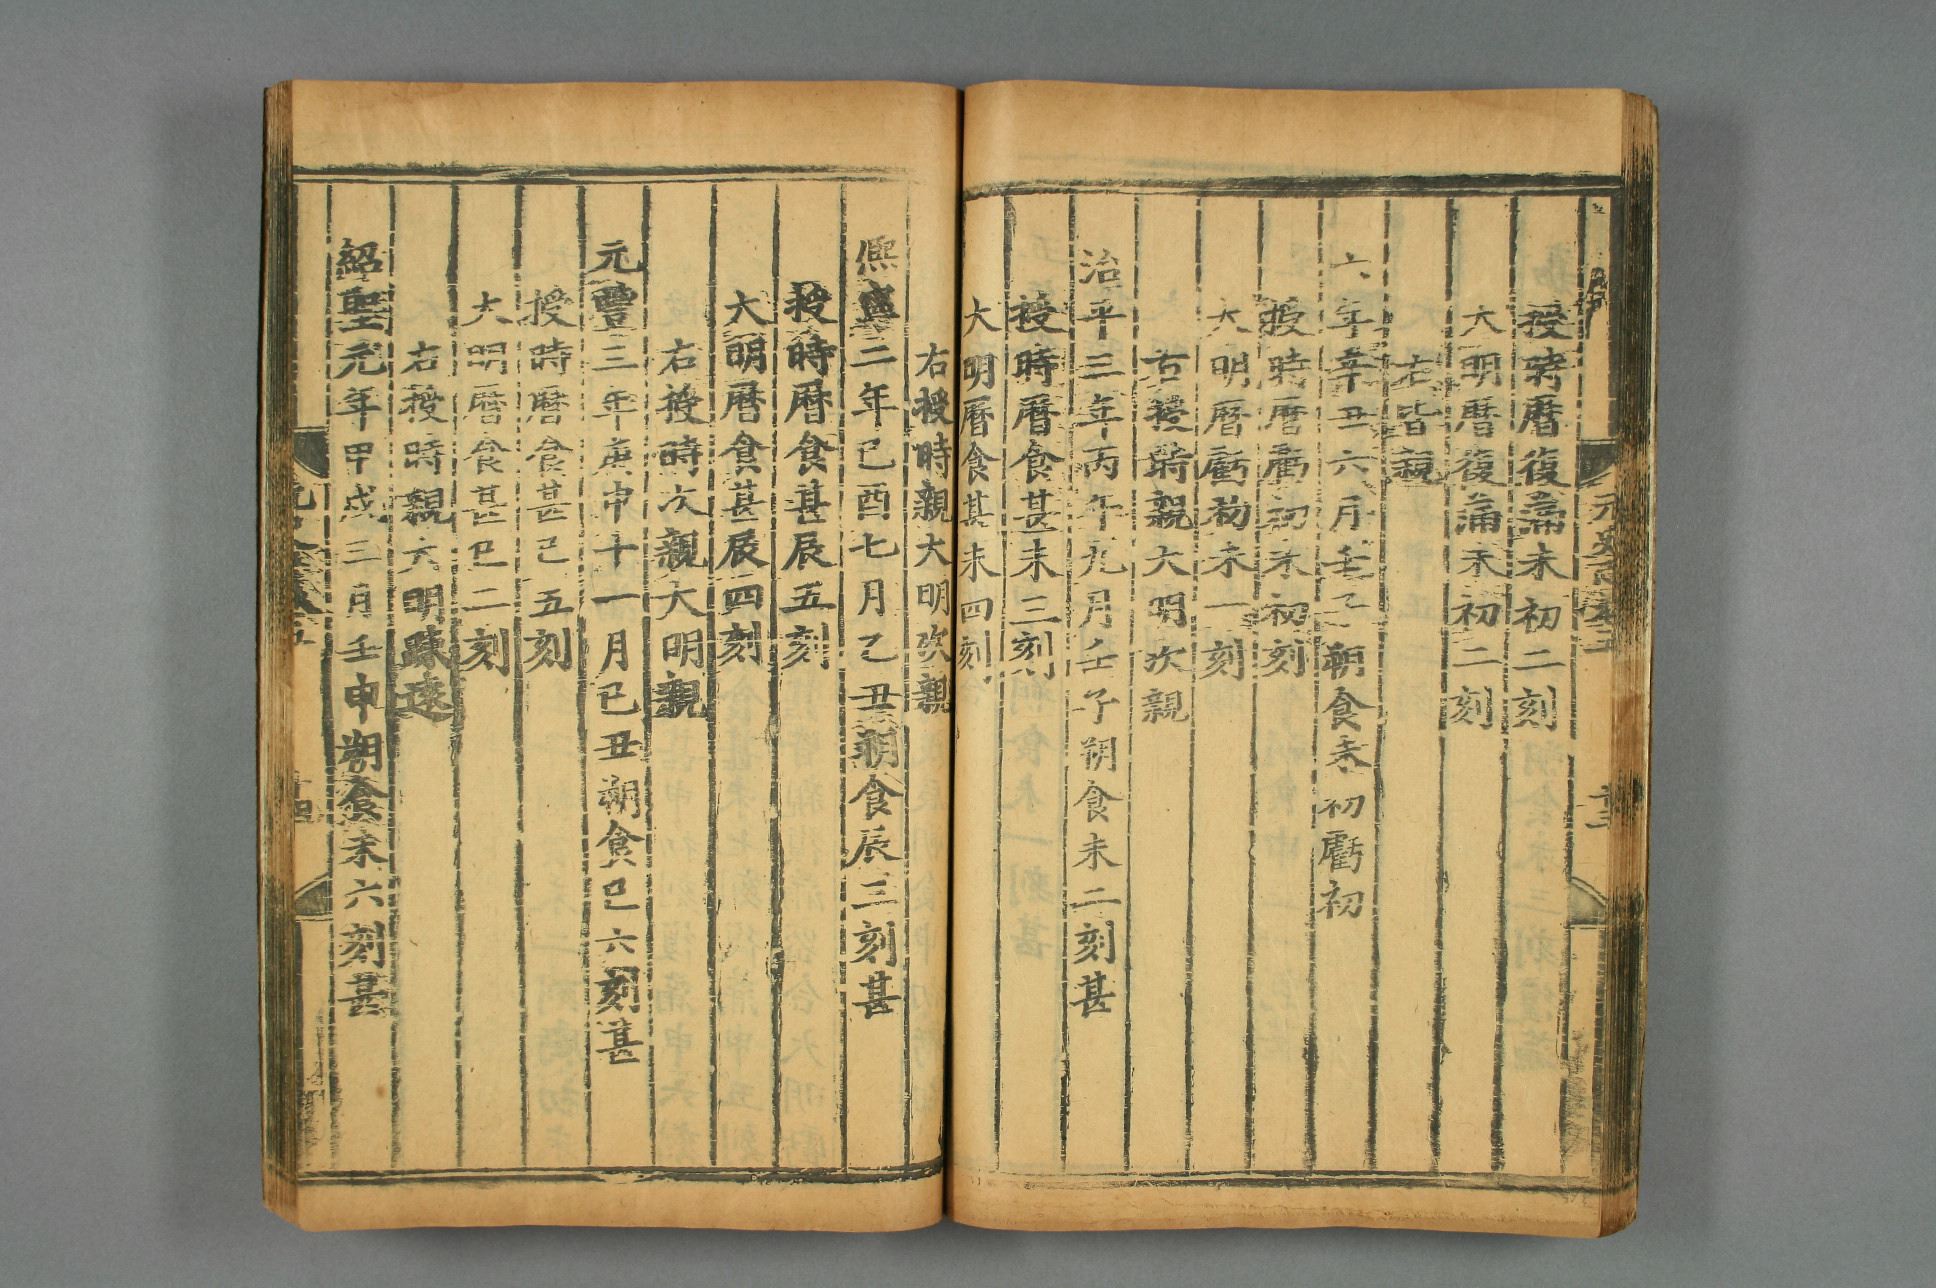 授時曆復滿未初二刻
大明曆復滿未初二刻
右皆親
六年辛丑六月壬子朔食未初虧初
授時曆虧初未初刻
大明曆虧初未一刻
右授時親大明次親
治平三年丙午九月壬子朔食未二刻甚
授時曆食甚未三刻
大明曆食甚未四刻
右授時親大明次親
熙寧二年己酉七月乙丑朔食辰三刻甚
授時曆食甚辰五刻
大明曆食甚辰四刻
右授時次親大明親
元豐三年庚申十一月己丑朔食巳六刻甚
授時曆食甚巳五刻
大明曆食甚巳二刻
右授時親大明疎遠
紹聖元年甲戌三月壬申朔食未六刻甚
十四